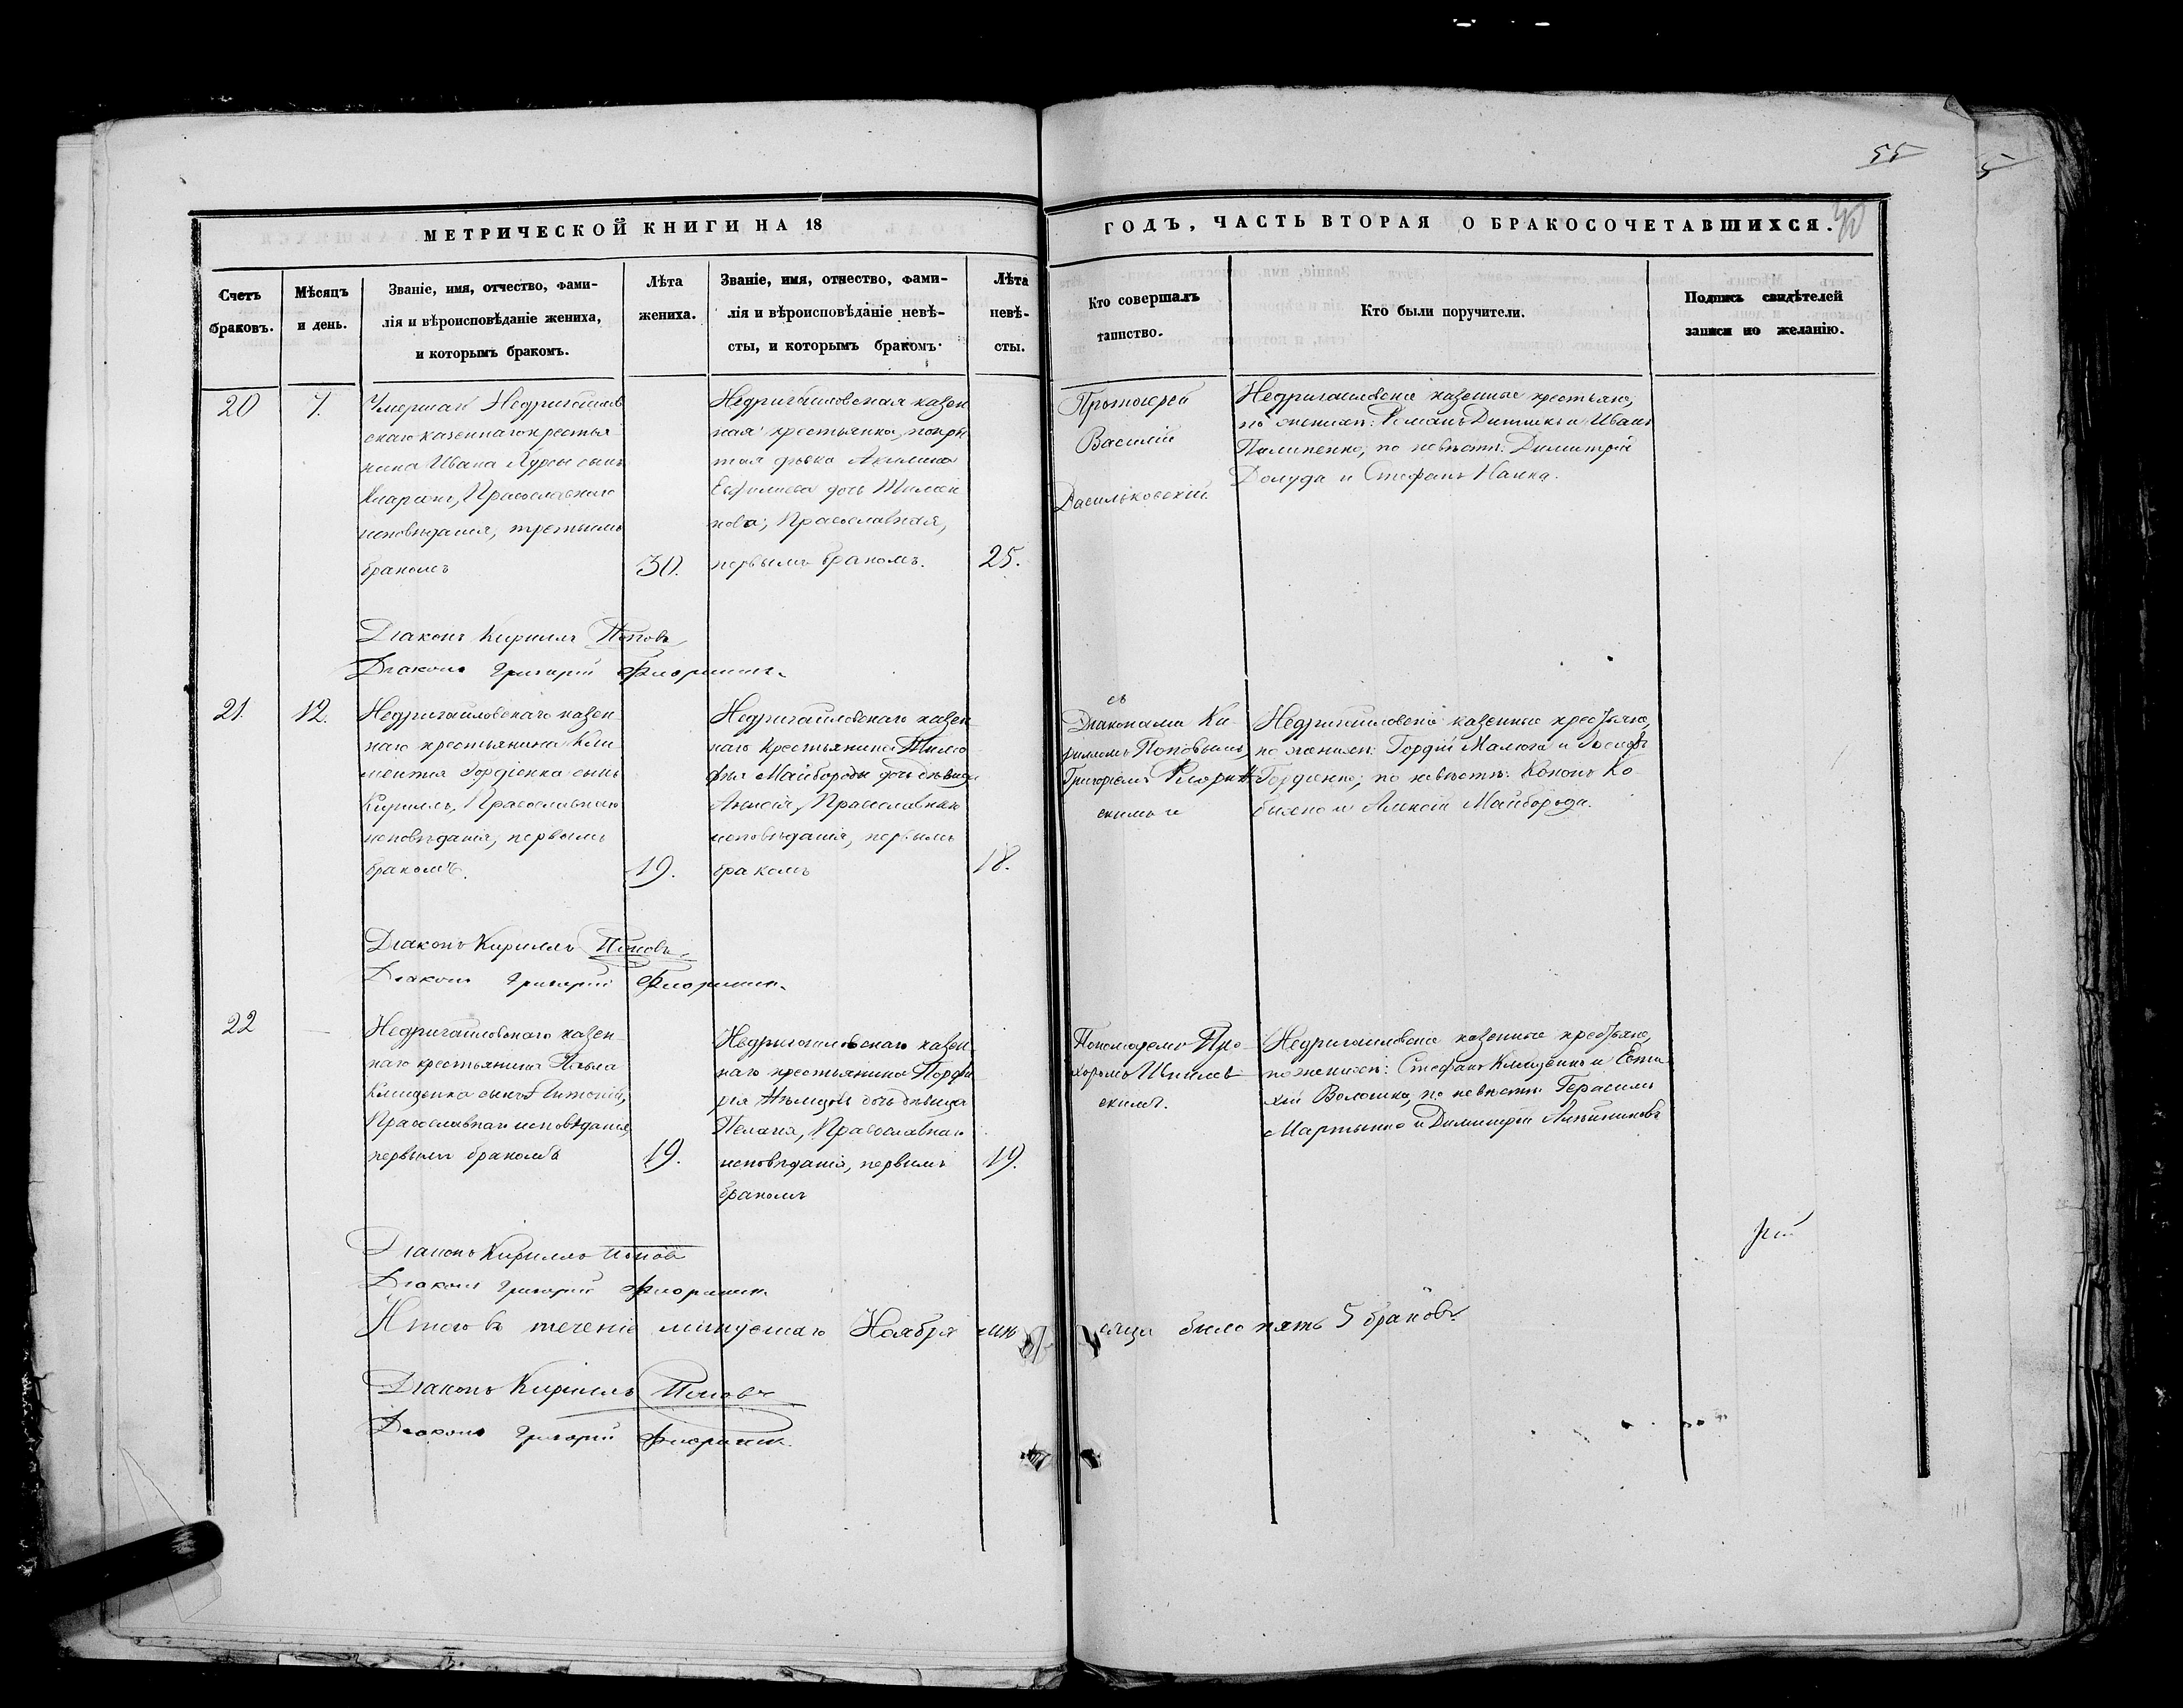 55
МЕТРИЧЕСКОЙ КНИГИ НА 18
ГОДЪ, ЧАСТЬ ВТОРАЯ О БРАКОСОЧЕТАВШИХСЯ.
Счетъ
браковъ.
Мѣсяцъ
и день.
Званіе, имя, отчество, фами-
лія и вѣроисповѣданіе жениха,
и которымъ бракомъ.
Лѣта
жениха.
Званіе, имя, отчество, фами-
лія и вѣроисповѣданіе невѣ-
сты, и которымъ бракомъ.
Лѣта
невѣ-
сты.
Кто совершалъ
таинство.
Кто были поручители.
Подпись свидѣтелей
записи по желанію.
20
7.
Умершаго Недригайлов
скаго казеннаго крестья
нина Ивана сынъ
Православнаго
исповѣданія, третьимъ
бракомъ
30.
Недригайловская казен
ная крестьянка, покры
тая дѣвка Акилина
Евфимиева дочь
Православная,
первымъ бракомъ.
25.
Протоіерей
Василій
Васильковскій.
Недригайловскіе казенные крестьяне,
по женихѣ: Романъ и Иванъ
Пилипенко, по невѣстѣ: Димитрій
Долуда и Стефанъ
Діаконъ Кириллъ Поповъ
Діаконъ Григорій Флоринск.
21.
12.
Недригайловскаго казен
наго крестьянина Кли
ментія Гордіенка сынъ
Кириллъ, Православнаго
исповѣданія, первымъ
бракомъ.
19.
Недригайловскаго казен
наго крестьянина Тимо
фея Майбороды дочь дѣвица
Православнаго
исповѣданія, первымъ
бракомъ
18.
съ
Діаконами Ки-
рилломъ Поповымъ,
Григоріемъ Флорин
скимъ и
Недригайловскіе казенные крестьяне,
по женихѣ: Гордій Малюга и Іосифъ
Гордіенко; по невѣстѣ: Кононъ Ко-
и Алексій Майборода.
Діаконъ Кириллъ Поповъ
Діаконъ Григорій Флоринск.
22
—
Недригайловскаго казен
наго крестьянина Павла
Клищенка сынъ Антоній,
Православнаго исповѣданія,
первымъ бракомъ
19.
Недригайловскаго казен
наго крестьянина Порфи
рія дочь дѣвица
Пелагія, Православнаго
исповѣданія, первымъ
бракомъ
19.
Пономаремъ Про-
хоромъ
скимъ.
Недригайловскіе казенные крестьяне,
по женихѣ: Стефанъ Клищенко и Евти
хій Волошко, по невѣстѣ Герасимъ
Мартыненко и Димитрій
Діаконъ Кириллъ Поповъ
Діаконъ Григорій Флоринск.
Итого въ теченіе минуемаго Ноября мѣ сяца было пять 5 браковъ.
Діаконъ Кириллъ Поповъ
Діаконъ Григорій Флоринск.